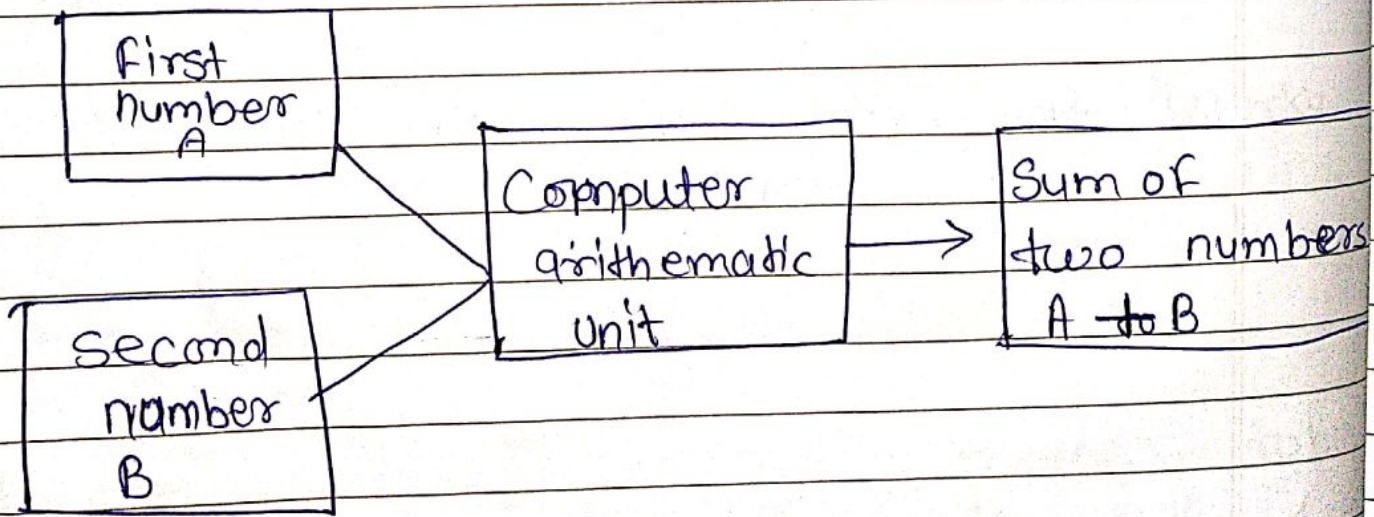 First
number
A
Second
number
B
Computer
arithematic
unit
Sum of
two numbers
A to B